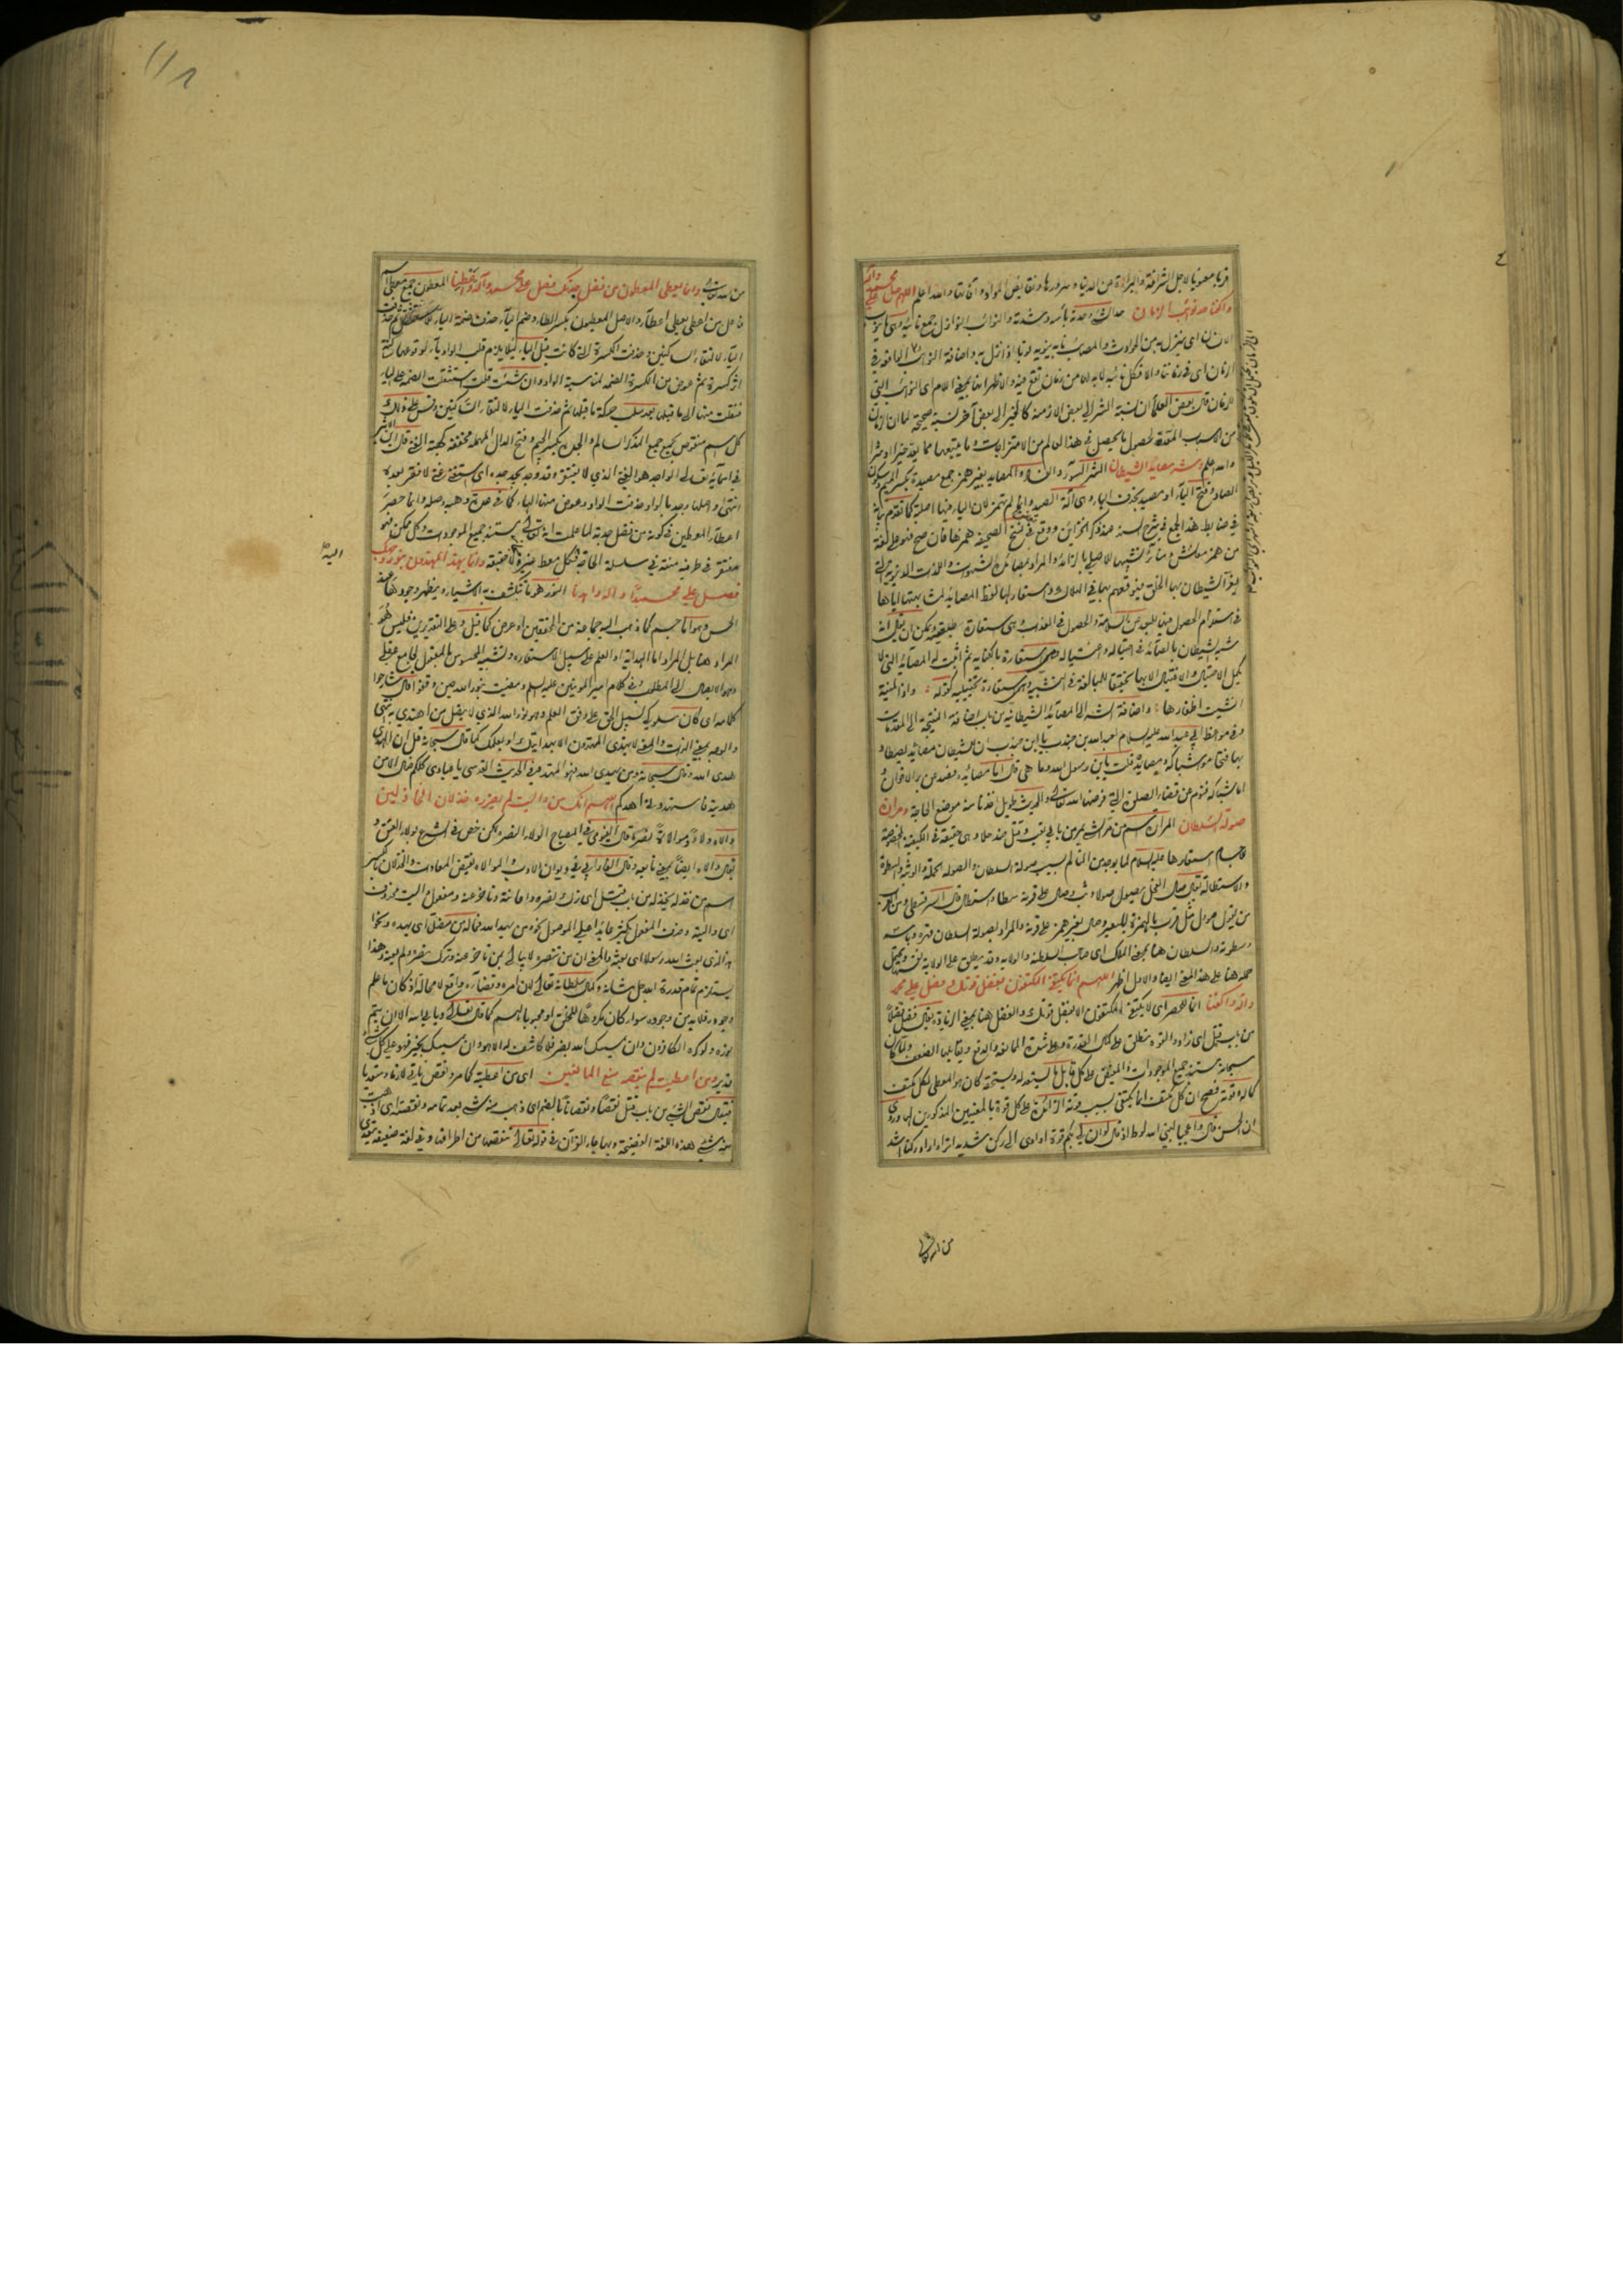 قربا معنويا لاجل الشرافة والبراءة من الدنيا وسرورها ونقايض المواد وآفاتها والله اعلم اللهم صل على محمد وآله
واكفنا حد نوائب الزمان حدة بأسه وشدته والنوائب النوازل جمع نائبة وهي ما ينوب
الانسان اى ينزل به من الحوادث والمصائب نابه ينوبه نوبا اذا نزل به واضافة النوائب
الزمان قال بعض العلماء ان نسبة الشر الى بعض الازمنة كالخير الى بعض آخر نسبة صحيحة لما ان الزمان
من الاسباب المعدة لحصول ما يحصل في هذا العالم من الامتزاجات وما يتبعها مما يعد خيرا او شرا
والله اعلم وشر مصائد الشيطان الشر السوء والفساد والمصايد بغير همز جمع مصيدة بكسر الميم وسكون
الصاد وفتح الياء او مصيد بحذف الهاء وهي آلة الصيد وانما لم تهمز لان الياء فيها اصلية كما تقدم بيانه
في ضابط هذا الجمع في شرح السند عند ذكر الخزائن ووقع في نسخ الصحيفة همزها فان صح فهو على لغة
من همز معائش ومنائر تشبيها للاصلي بالزائد والمراد بمصائد الشهوات واللذات الدنيوية التي
يغر الشيطان بها الخلق فيوقعهم بها في الهلاك واستعار لها لفظ المصائد لمشابهتها اياها
في استلزام الحصول فيها للبعد من السلامة والحصول في العذاب وهي استعارة حقيقية ويمكن ان يقال انه
شبه الشيطان بالصائد في احتياله واغتياله وهي استعارة بالكناية ثم اثبت له المصائد التي لا
يكمل الاحتيال والاغتيال الا بها تحقيقا للمبالغة في التشبيه وهي استعارة تخييلية كقوله واذا المنية
انشبت اظفارها واضافة الشر الى المصائد الشيطانية من باب اضافة النتيجة الى المقدمات
ومن مواعظ ابي عبد الله عليه السلام لعبد الله بن جندب يا ابن جندب ان للشيطان مصائد يصطاد
بها فتحاموا شباكه ومصائده قلت يا ابن رسول الله وما هي قال اما مصائده فصد عن بر الاخوان و
اما شباكه فنوم عن قضاء الصلوة التي فرضها الله تعالى والحديث طويل اخذنا منه موضع الحاجة ومرارة
صولة السلطان المرارة اسم من مر الشيء يمر من بابي تعب وقتل ضد حلا وهي حقيقة في الكيفية المخصوصة
استعارها عليه السلام لما يوجد من التألم بسبب صولة السلطان والصولة الحملة والوثبة والسطوة
والاستطالة يقال صال الفحل يصول صولا وثب وصال على قرنه سطا واستطال قال السرقسطي ومن العرب
من يقول صول مثل قرب بالهمزة للبعير وصال بغير همز على قرنه والمراد بصولة السلطان قهره وبأسه
وسطوته والسلطان هنا بمعنى الملك اى صاحب السلطنة والولاية وقد يطلق على الولاية نفسها ويحتمل
حمله هنا على هذا المعنى ايضا والاول اظهر اللهم انما يكتفي المكتفون بفضل قوتك فصل على محمد
وآله واكفنا انما للحصر اى لا يكتفي المكتفون الا بفضل قوتك والفضل هنا بمعنى الزيادة يقال فضل فضلا
من باب قتل اى زاد والقوة تطلق على كمال القدرة وعلى شدة الممانعة والدفع ويقابلها الضعف ولما كان
سبحانه مستند جميع الموجودات والمفيض على كل قابل ما يستعد له ويستحقه كان هو المعطى لكل مكتف
كماله وقوته فصح ان كل مكتف انما يكتفي بسبب قوته الزائدة على كل قوة بالمعنيين المذكورين لها وروى
ان الحسن قال واعجبا لنبي الله لوط اذ قال لو ان لي بكم قوة او آوى الى ركن شديد اتراه اراد ركنا اشد
من الله تعالى
من الله تعالى وانما يعطى المعطون من فضل جدتك فصل على محمد وآله واعطنا المعطون جمع معطى اسم
فاعل من اعطى يعطى اعطاء والاصل المعطيون بكسر الطاء وضم الياء حذفت ضمة الياء
الياء لالتقاء الساكنين وحذفت الكسرة التي كانت قبل الياء لئلا يلزم قلب الواو ياء لوقوعها ساكنة
اثر كسرة ثم عوض من الكسرة الضمة لمناسبة الواو وان شئت قلت استثقلت الضمة على الياء
فنقلت منها الى ما قبلها بعد سلب حركة ما قبلها ثم حذفت الياء لالتقاء الساكنين وقس على ذلك
كل اسم منقوص يجمع جمع المذكر السالم والجدة بكسر الجيم وفتح الدال المهملة مخففة كهبة الغنى قال ابن الاثير
في اسمائه تعالى الواجد هو الغني الذي لا يفتقر وقد وجد يجد جدة اى استغنى غنى لا فقر بعده
انتهى واصلها وجد بالواو حذفت الواو وعوض عنها الهاء كما في عدة وهبة وصلة وانما حصر
اعطاء المعطين في كونه من فضل جدته لما علمت انه تعالى مستند جميع الموجودات وكل ممكن فهو
مفتقر في طرفيه منته في سلسلة الحاجة اليه فكل معط غيره لا حقيقة وانما يهتدى المهتدون بنور وجهك
فصل على محمد وآله واهدنا النور هو ما تنكشف به الاشياء ويظهر وجودها عند
الحس وهو اما جسم كما ذهب اليه جماعة من المحققين او عرض كما قيل وعلى التقديرين فليس هو
المراد هنا بل المراد اما الهداية او العلم على سبيل الاستعارة وتشبيه المحسوس بالمعقول لجامع عقلي
وهو الايصال الى المطلوب وفي كلام امير المؤمنين عليه السلام ومضيت بنور الله حين وقفوا قال شارحوا
كلامه اى كان سلوكي لسبيل الحق على وفق العلم وهو نور الله الذي لا يضل من اهتدى به انتهى
والوجه بمعنى الذات والمعنى لا يهتدى المهتدون الا بهدايتك او بعلمك كما قال سبحانه قل ان الهدى
هدى الله وقال سبحانه ومن يهدى الله فهو المهتد وفي الحديث القدسي يا عبادي كلكم ضال الا من
هديته فاستهدوني اهدكم اللهم انك من واليت لم يضرره خذلان الخاذلين
والاه ولاء وموالاة نصره قال الفيومي في المصباح الولاء النصرة لكن خص في الشرع بولاء العتق و
يقال والاه ايضا بمعنى تابعه وقال الفارابي في ديوان الادب والموالاة نقيض المعاداة والخذلان بالكسر
اسم من خذله يخذله من باب قتل اى ترك نصره واعانته وتأخر عنه ومفعول واليت محذوف
اى واليته وحذف المفعول يكثر عائدا على الموصول نحو من يهد الله فما له من مضل اى يهده ونحو
اهذا الذي بعث الله رسولا اى بعثه والمعنى ان من تنصره لا يبالي بمن تأخر عنه وترك نصره ولم يعنه وهذا
يستلزم تمام قدرة الله جل شأنه وكمال سلطانه تعالى لان امره وقضاءه واقع لا محالة اذ كان ما علم
وجوده فلا بد من وجوده سواء كان مكروها للخلق او محبوبا لهم كما قال تعالى ويأبى الله الا ان يتم
نوره ولو كره الكافرون وان يمسسك الله بضر فلا كاشف له الا هو وان يمسسك بخير فهو على كل شيء
قدير ومن اعطيت لم ينقصه منع المانعين اى من اعطيته كما مر ونقص يأتي لازما ومتعديا
فيقال نقص الشيء من باب قتل نقصا ونقصانا بالضم اى ذهب منه شيء بعد تمامه ونقصته اى اذهبت
منه شيئا هذه اللغة الفصيحة وبها جاء القرآن في قوله تعالى ننقصها من اطرافها وفي لغة ضعيفة يتعدى
اليه صح